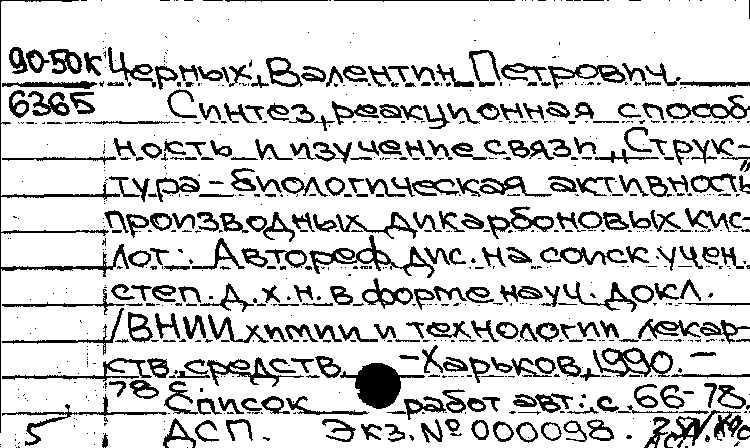 90-50к Черных, Валентин Петрович.
6365 Синтез, реакционная способ
ность и изучение связи „Струк-
тура-биологическая активность"
производных дикарбоновых кис
лот: Автореф. дис. на соиск. учен.
степ. д.х.н. в форме науч. докл.
/ВНИИ химии и технологии лекар-
ств. средств. -Харьков, 1990.-
78 с.
Список работ авт.: с. 66-78.
5. ДСП. Экз. № 000098.